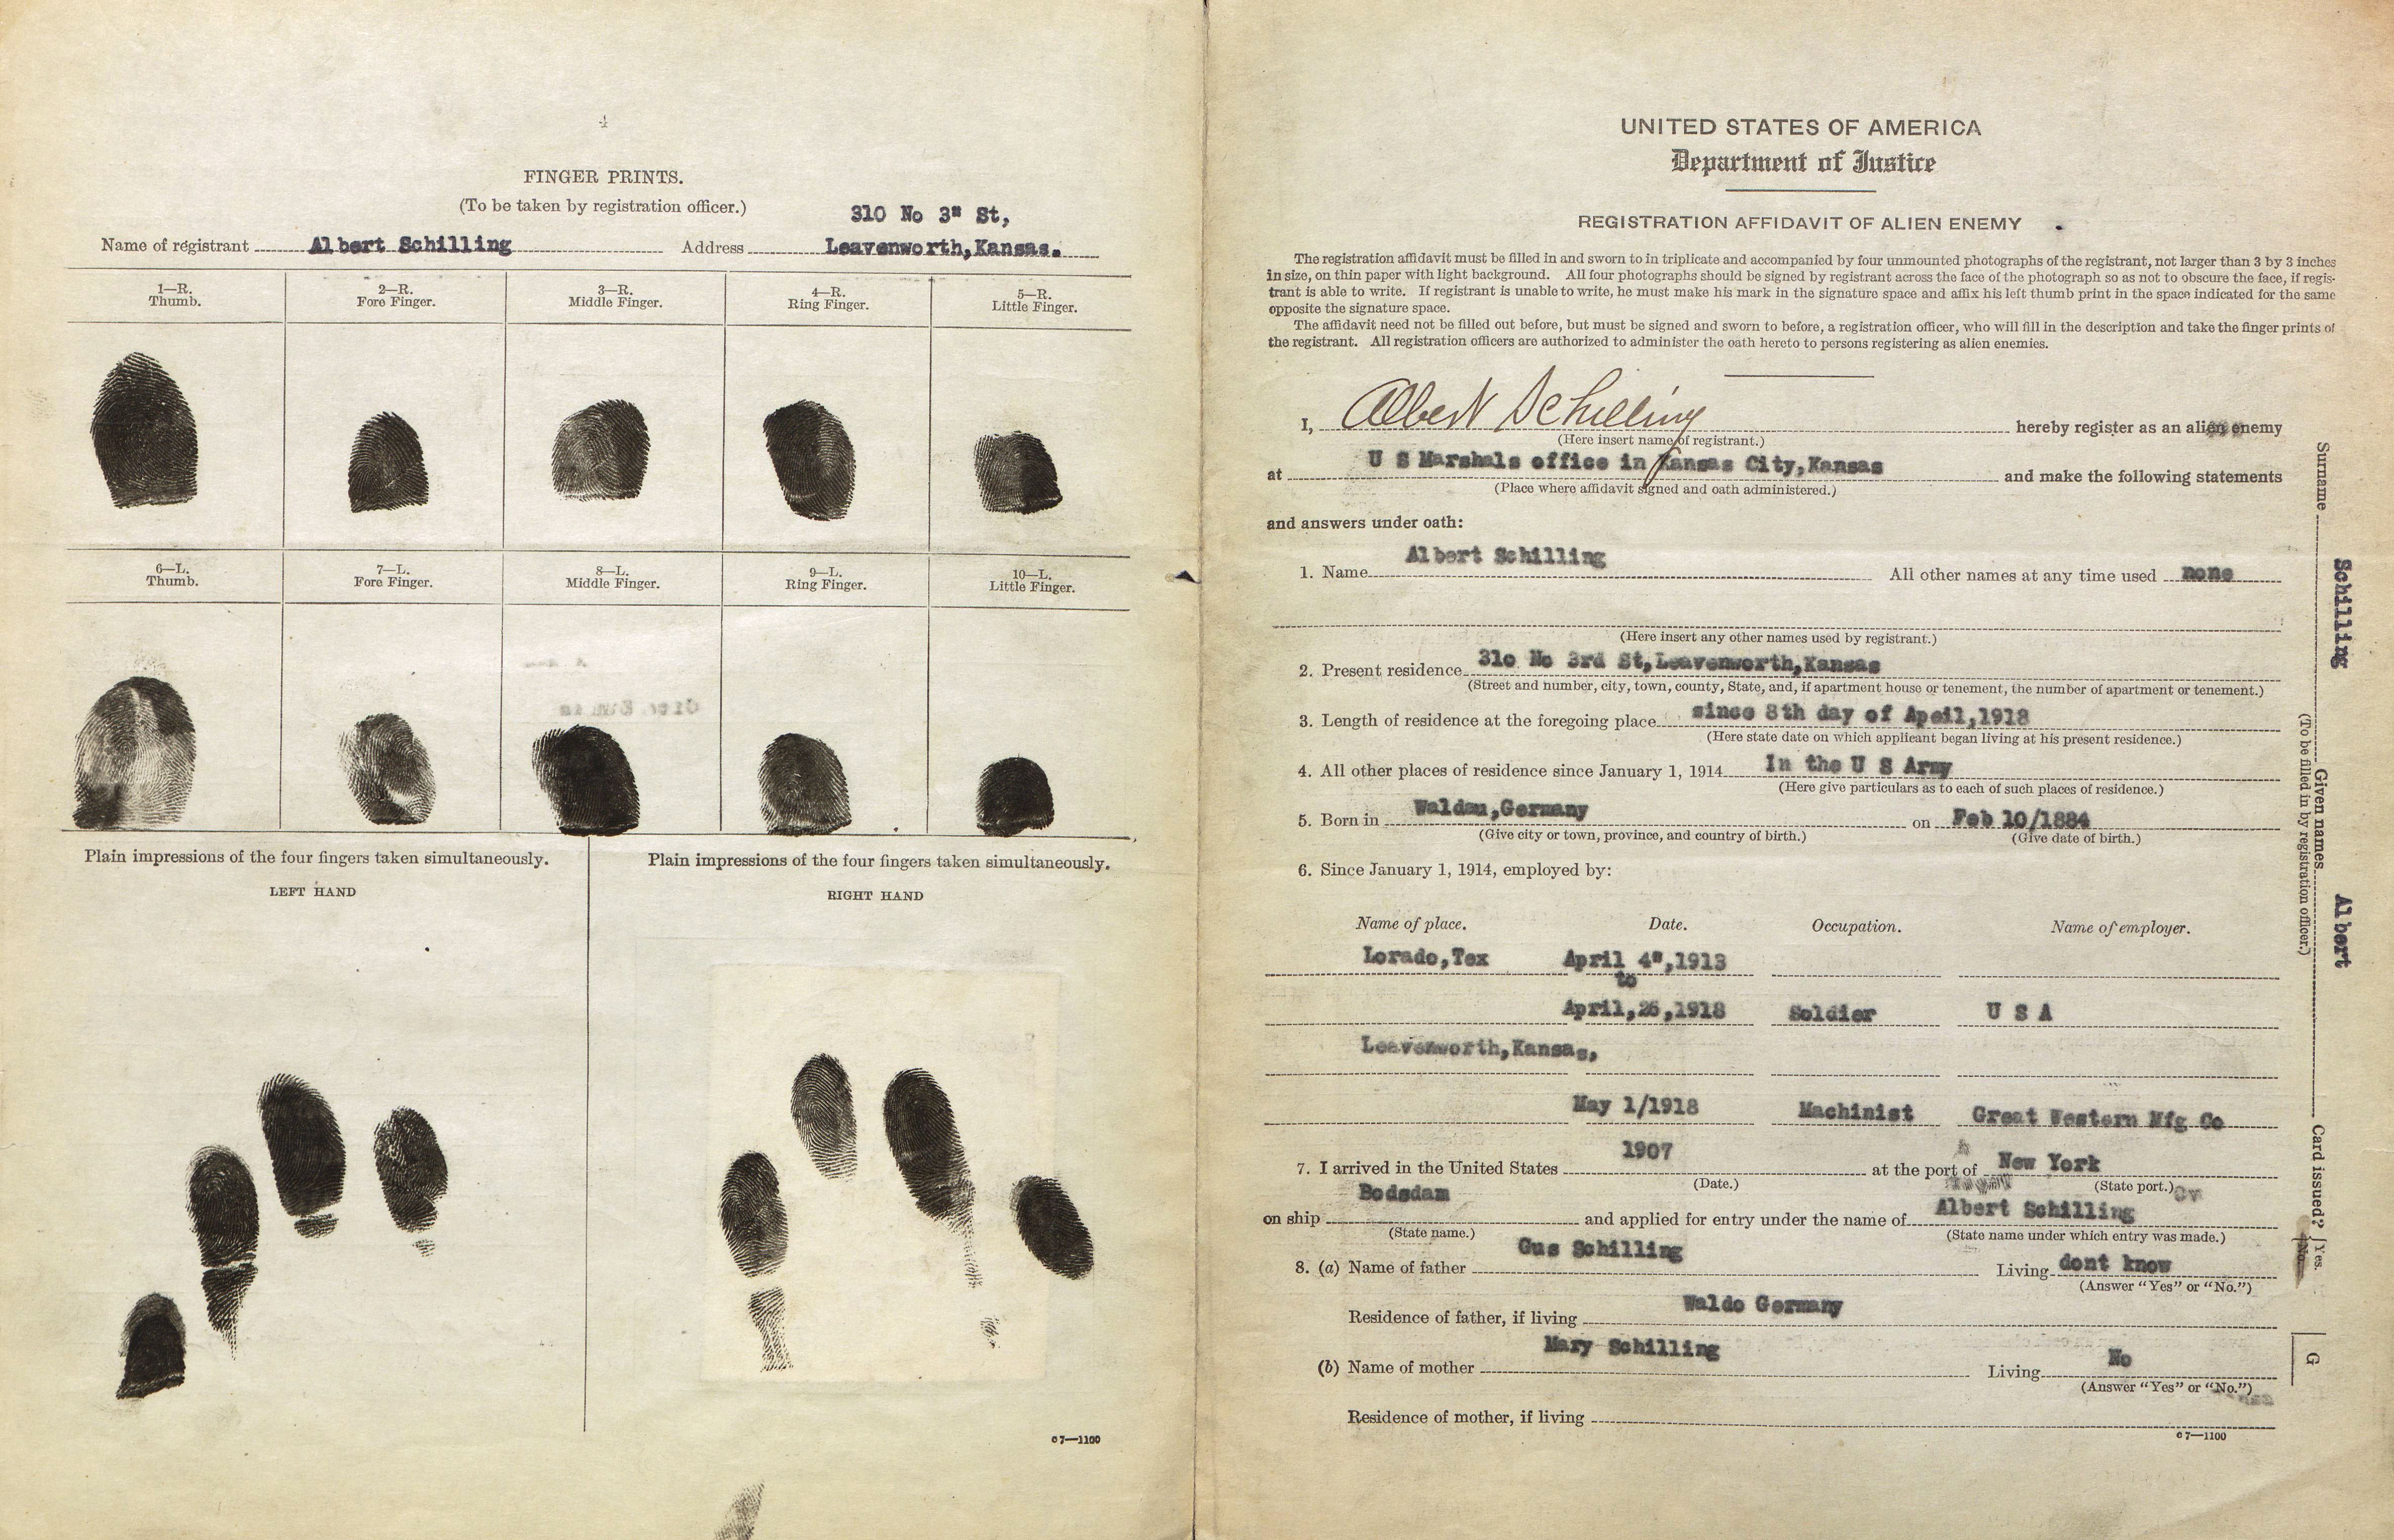 4
FINGER PRINTS.
(To be taken by registration officer.)
310 No 3" St,
Name of registrant Albert Schilling Address Leavenworth,Kansas.
1—R. Thumb. 2—R. Fore Finger. 3—R. Middle Finger. 4—R. Ring Finger. 5—R. Little Finger.
6—L. Thumb. 7—L. Fore Finger. 8—L. Middle Finger. 9—L. Ring Finger. 10—L. Little Finger.
Plain impressions of the four fingers taken simultaneously. Plain impressions of the four fingers taken simultaneously.
LEFT HAND RIGHT HAND
c7—1100
UNITED STATES OF AMERICA
Department of Justice
REGISTRATION AFFIDAVIT OF ALIEN ENEMY
The registration affidavit must be filled in and sworn to in triplicate and accompanied by four unmounted photographs of the registrant, not larger than 3 by 3 inches
in size, on thin paper with light background. All four photographs should be signed by registrant across the face of the photograph so as not to obscure the face, if regis-
trant is able to write. If registrant is unable to write, he must make his mark in the signature space and affix his left thumb print in the space indicated for the same
opposite the signature space.
The affidavit need not be filled out before, but must be signed and sworn to before, a registration officer, who will fill in the description and take the finger prints of
the registrant. All registration officers are authorized to administer the oath hereto to persons registering as alien enemies.
I, Albert Schilling hereby register as an alien enemy
(Here insert name of registrant.)
at U S Marshals office in Kansas City,Kansas and make the following statements
(Place where affidavit signed and oath administered.)
and answers under oath:
1. Name Albert Schilling All other names at any time used none
(Here insert any other names used by registrant.)
2. Present residence 31o No 3rd St,Leavenworth,Kansas
(Street and number, city, town, county, State, and, if apartment house or tenement, the number of apartment or tenement.)
3. Length of residence at the foregoing place since 8th day of Apeil,1918
(Here state date on which applicant began living at his present residence.)
4. All other places of residence since January 1, 1914 In the U S Army
(Here give particulars as to each of such places of residence.)
5. Born in Waldau,Germany on Feb 10/1884
(Give city or town, province, and country of birth.) (Give date of birth.)
6. Since January 1, 1914, employed by:
Name of place. Date. Occupation. Name of employer.
Lorado,Tex April 4",1913
to
April,26,1918 Soldier U S A
Leavenworth,Kansas,
May 1/1918 Machinist Great Western Mfg Co
7. I arrived in the United States 1907 at the port of New York
(Date.) (State port.)
on ship Bodsdam and applied for entry under the name of Albert Schilling
(State name.) (State name under which entry was made.)
8. (a) Name of father Gus Schilling Living dont know
(Answer "Yes" or "No.")
Residence of father, if living Waldo Germany
(b) Name of mother Mary Schilling Living No
(Answer "Yes" or "No.")
Residence of mother, if living
c7—1100
Surname Schilling Given names Albert Card issued? Yes. No.
(To be filled in by registration officer.)
G